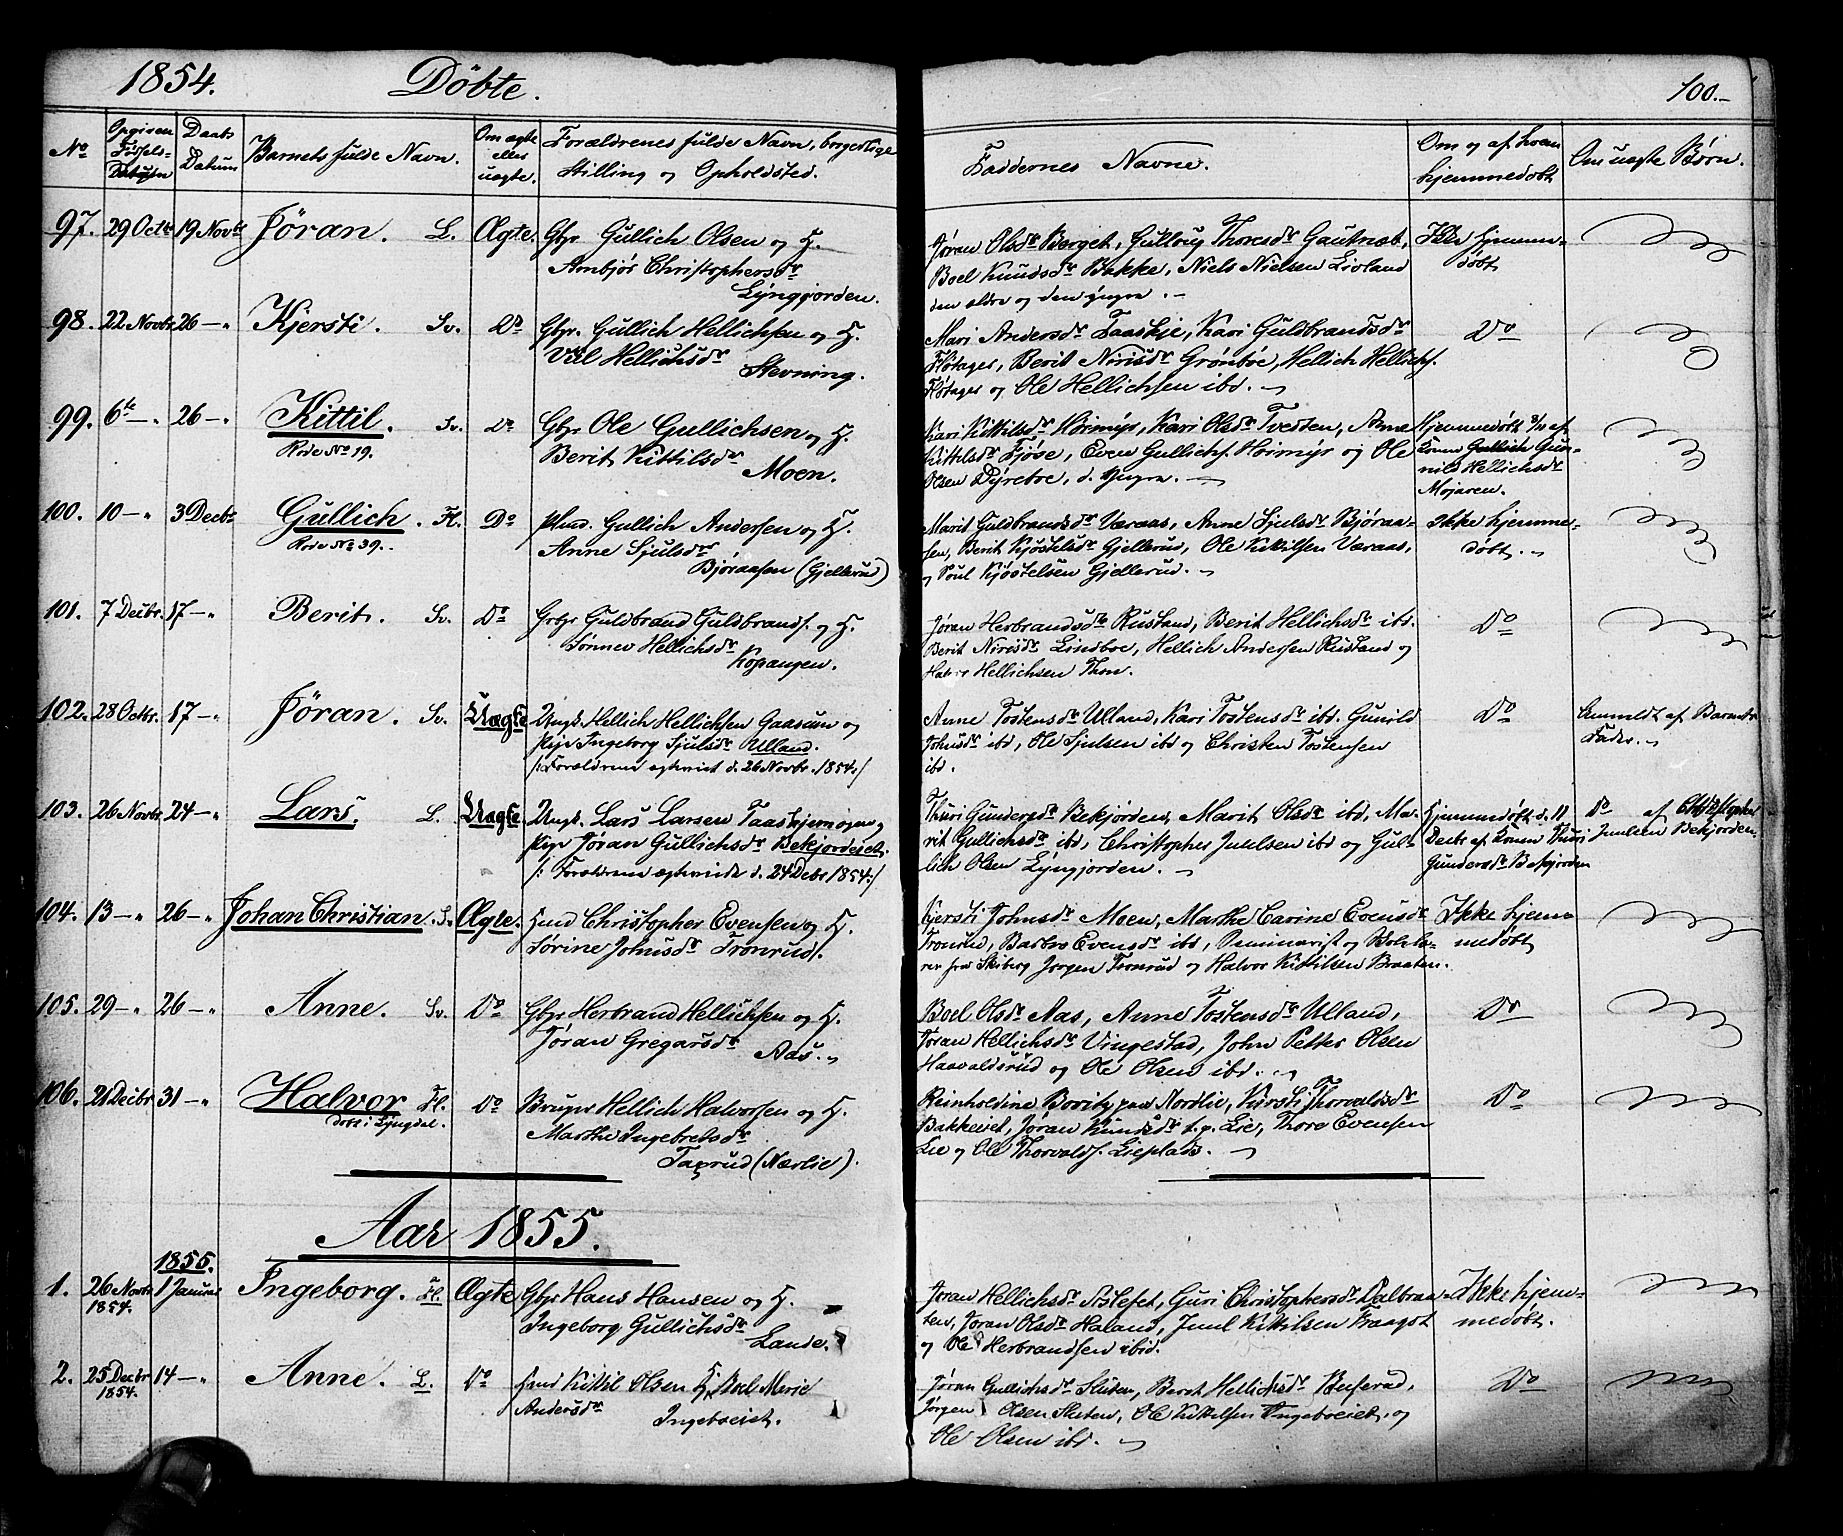 1854. Döbte. 100.-
No Opgiven Födsels-Datum Daabs Datum Barnets fulde Navn. Om ægte eller uægte. Forældrenes fulde Navn, borgerlige Stilling og Opholdsted. Faddernes Navne. Om og af hvem hjemmedöbt Om uægte Börn.
97. 29 Octbr 19 Novbr Jöran. L. Ægte. Gbr Gullich Olsen og H. Jöran Olsdr Berget, Gullaug Thoresdr Gautnæb, Ikke hjemme-
Ambjör Christophersdr Boel Knudsdr Bakke, Niels Nielsen Livland döbt
Lyngjorden. den ældre og den yngre. -
98. 22 Novbr 26 - " Kjersti. Sv. Do Gbr. Gullich Hellichsen og H. Mari Andersdr Taaskje, Kari Guldbrandsdr Do
Hellichsdr Flötager, Berit Nirisdr Grönboe, Hellich Hellichs.
Stevning. Flötager og Ole Hellichsen ibd. -
99. 6te - " 26 - " Kittil. Sv. Do Gbr Ole Gullichsen og H. Kari Kittilsdr Hoimyr, Kari Olsdr Tvedten, Anne Hjemmedöbt af
Rode No 19. Berit Kittilsdr Kittilsdr Fjöse, Even Gullichs. Hoimyr og Ole Konen Gullich Gun-
Moen. Olsen Dyreboe, d. yngre. - nild Hellichsdr
Mojaren.
100. 10 - " 3 Decbr Gullich. Fl. Do Hmd. Gullich Andersen og H. Marit Guldbrandsdr Væraas, Anne Sjulsdr Björaa- Ikke hjemme-
Rode No 39. Anne Sjulsdr sen, Berit Kjöstelsdr Gjellerud, Ole Kittilsen Væraas, döbt. -
Björaasen (Gjellerud) og Poul Kjöstelsen Gjellerud. -
101. 7 Decbr. 17 - " Berit. Sv. Do Gbr Guldbrand Guldbrands. og H. Jöran Herbrandsdr Rustand, Berit Hellichsdr ibd. Do
Sönnev Hellichsdr Berit Nirisdr Lindboe, Hellich Andersen Rustand og
Kopangen. Halvor Hellichsen Thon.
102. 28 Octbr. 17 - " Jöran. Sv. Uægte Ungk. Hellich Hellichsen Gaasum og Anne Tostensdr Ulland, Kari Tostensdr ibd. Gunild Do Anmeldt af Barnets
Pige Ingeborg Sjulsdr Ulland. Johnsdr ibd, Ole Sjulsen ibd og Christen Tostensen Fader. -
/: Forældrene ægteviet d. 26 Novbr. 1854 :/ ibd.
103. 26 Novbr 24 - " Lars. L. Uægte. Ungk. Lars Larsen Taaskjernoien og Thuri Gundersdr Bekjorden, Marit Olsdr ibd, Ma- Hjemmedöbt d. 11 Do af Christopher
Pige Jöran Gullichsdr Bekjordeiet. rit Gullichsdr ibd, Christopher Juulsen ibd og Gul- Decbr af Konen Thuri Juulsen Bekjorden.
/: Forældrene ægteviede d. 24 Debr 1854 :/ lich Olsen Lyngjorden. - Gundersdr Bekjorden
104. 13 - " 26 - " Johan Christian. Sv. Ægte. Hmd Christopher Evensen og H. Kjersti Johnsdr Moen, Marthe Carine Evensdr Ikke hjem-
Sörine Johnsdr Tronrud. Tronrud, Barbro Evensdr ibd, Seminarist og Skolelæ- medöbt
rer fra Skiberg Jörgen Tronrud og Halvor Kittilsen Braaten.
105. 29 - " 26 - " Anne. Sv. Do Gbr Herbrand Hellichsen og H. Boel Olsdr Aas, Anne Tostensdr Ulland, Do
Jöran Gregarsdr Jöran Hellichsdr Vingestad, John Petter Olsen
Aas. - Haavaldsrud og Ole Olsen ibd. -
106. 21 Decbr 31 - " Halvor Fl. Do Bruger Hellich Halvorsen og H. Reinholdine paa Nordlie, Kirsti Thorvaldsdr Do
Döbt i Lyngdal. Marthe Ingebretsdr Bakkeiet, Jöran Knudsdr Lie, Thore Evensen
Taxrud (Nærlie). Lie og Ole Thorvalds. Lieplads. -
Aar 1855.
1855.
1. 26 Novbr 1 Januar Ingeborg. Fl. Ægte Gbr Hans Hansen og H. Jöran Hellichsdr Aslefet, Guri Christophersdr Dalbraa- Ikke hjem-
1854. Ingeborg Gullichsdr ten, Jöran Olsdr Haland, Juul Kittilsen Traagst medöbt.
Lande. og Ole Herbrandsen ibid.
2. 25 Decbr 14 - " Anne. L. Do Hmd Kittil Olsen H. Boel Marie Jöran Gullichsdr Slusten, Beret Hellichsdr Buserud, Do
1854. Andersdr Jörgen Olsen Slusten, Ole Kittilsen Ingeboeiet, og
Ingeboeiet. Ole Olsen ibd. -